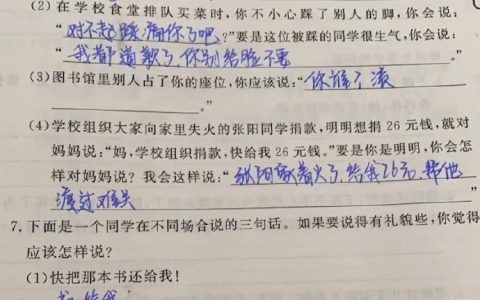 (2)在学校食堂排队买菜时,你不小心踩了别人的脚,你会说:
“对不起踩痛你了吧?”要是这位被踩的同学很生气,你会说:
“我都道歉了你别给脸不要 。”
(3)图书馆里别人占了你的座位,你应该说:“你谁?滚
。”
(4)学校组织大家向家里失火的张阳同学捐款,明明想捐 26 元钱,就对
妈妈说:“妈,学校组织捐款,快给我 26 元。”要是你是明明,你会怎
样对妈妈说? 我会这样说:“张阳家着火了,给我26元,帮他
渡过难关 ”
7. 下面是一个同学在不同场合说的三句话。如果要说得有礼貌些,你觉得
应该怎样说?
(1)快把那本书还给我!